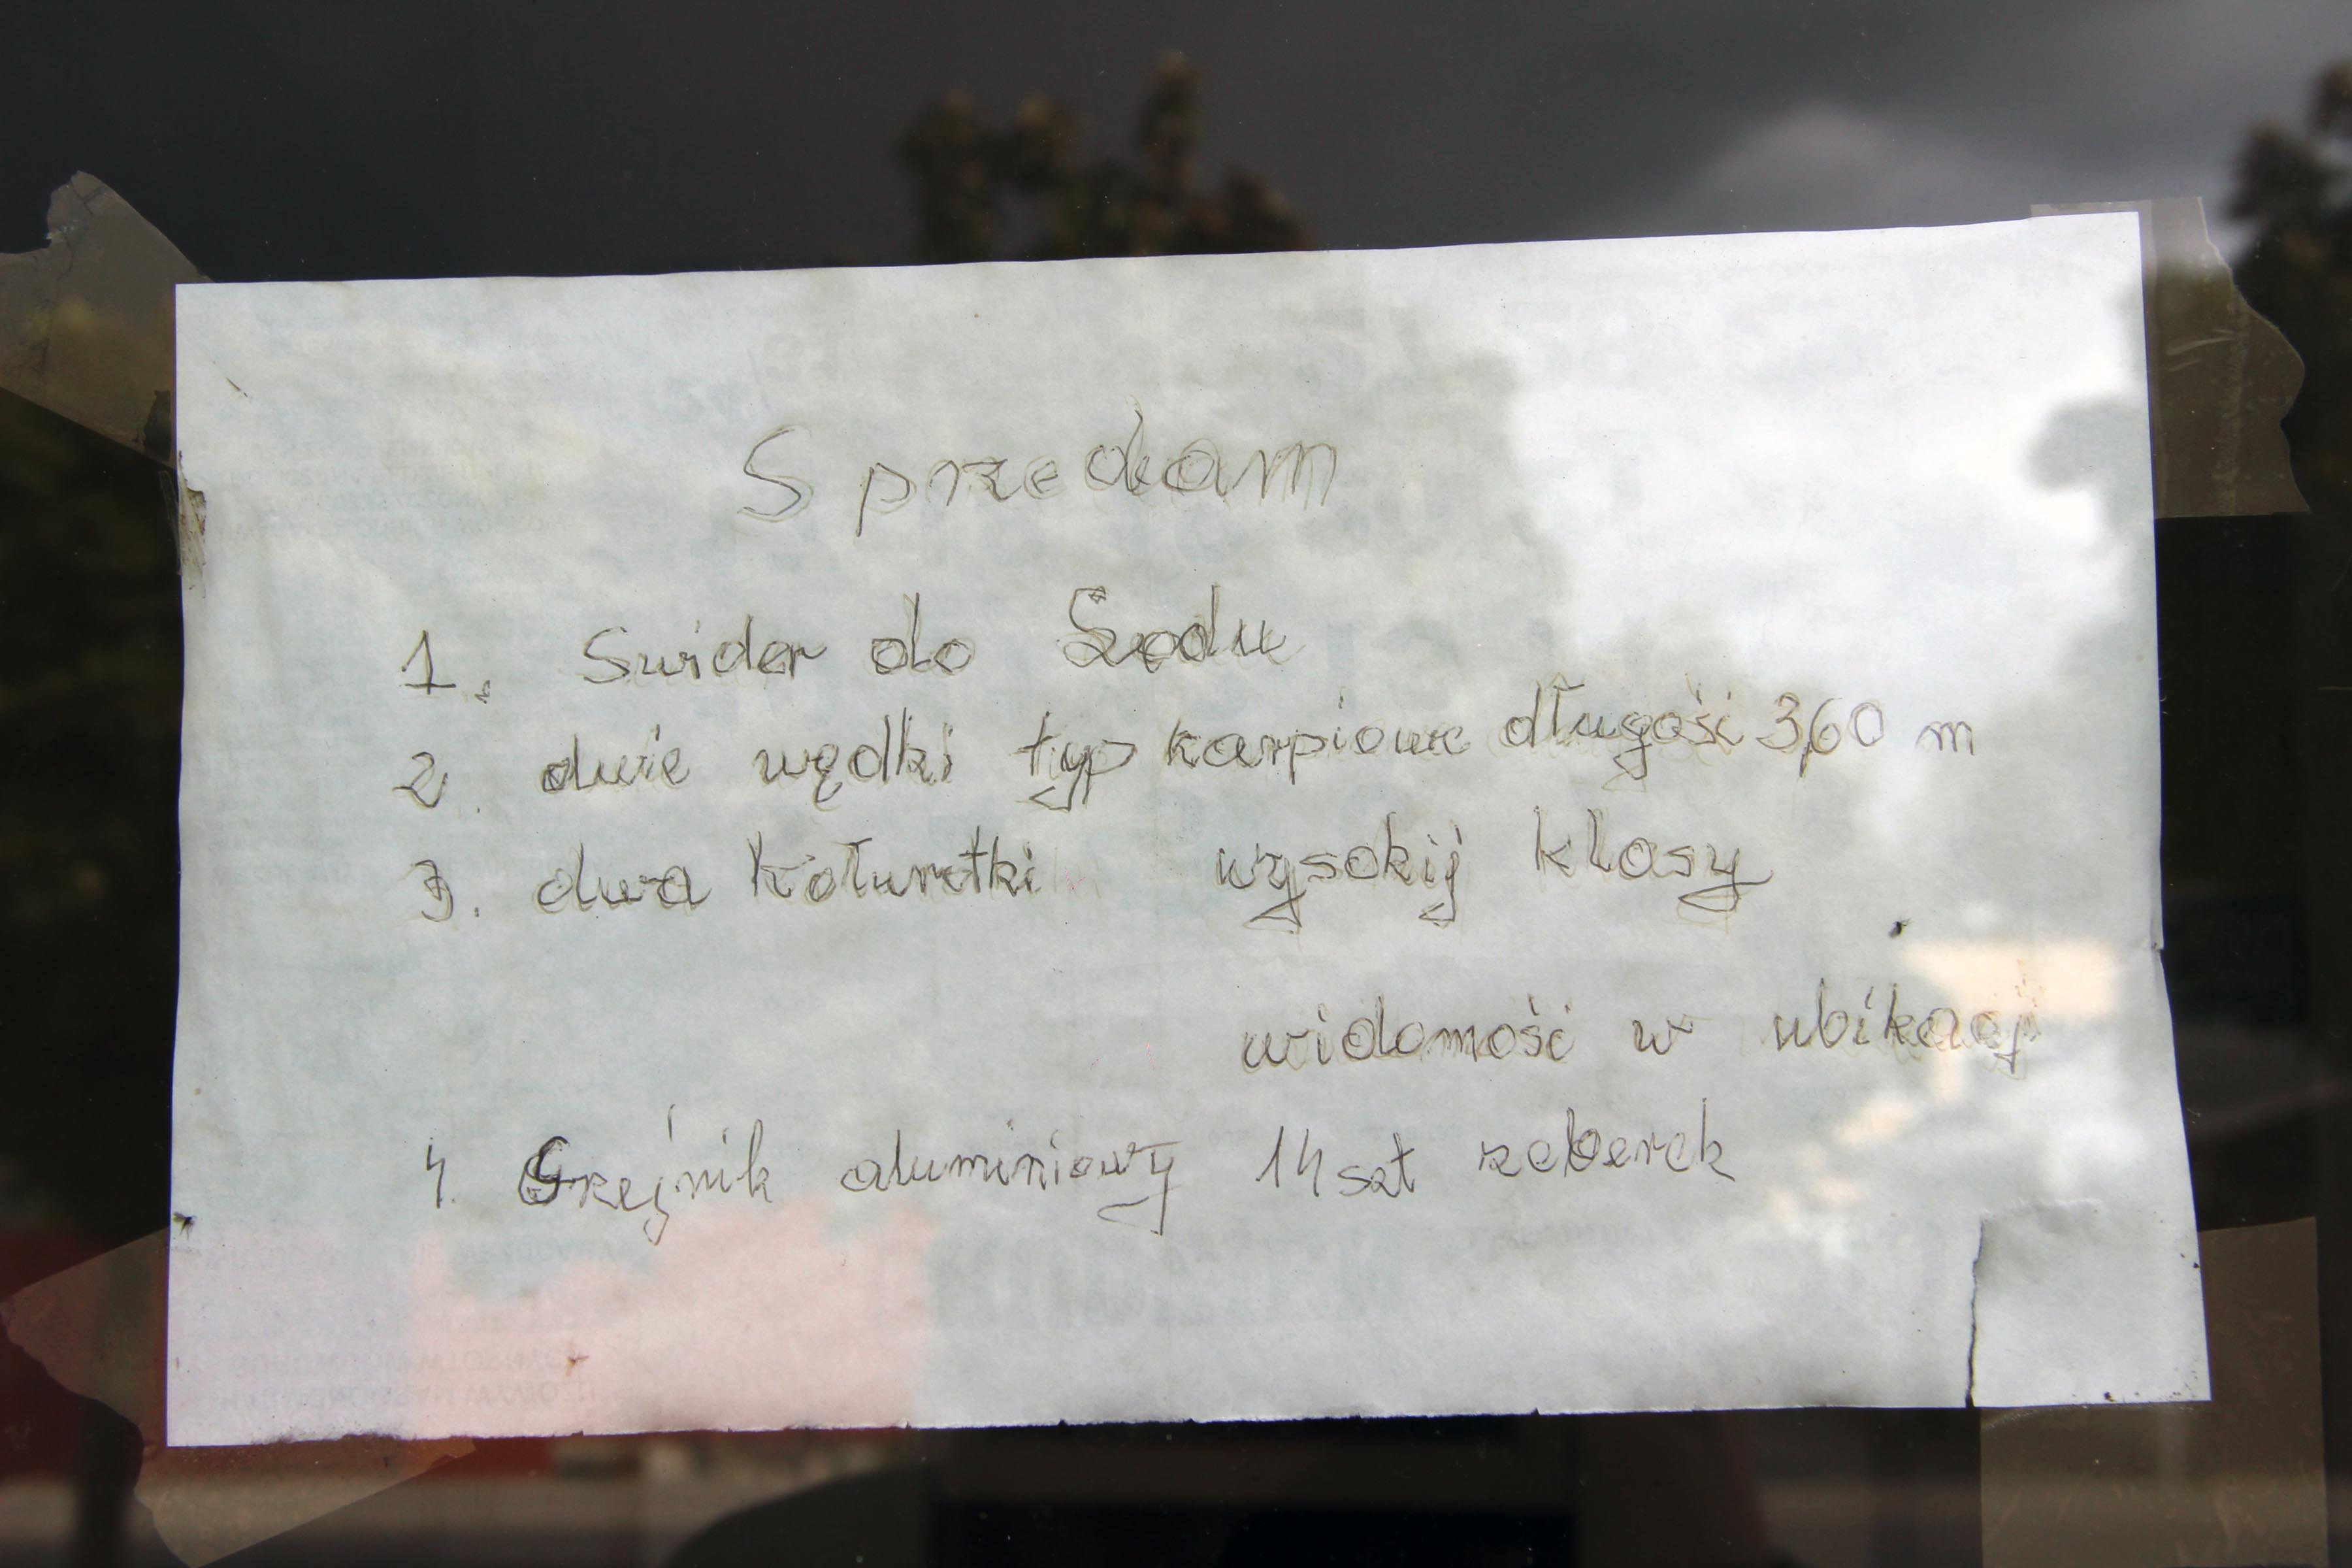 Sprzedam
1. Swider do Lodu
2. dwie wędki typ karpiowe długości 3,60 m
3. dwa Kołwrotki wysokij klasy
widomość w ubikacji
4. Grzejnik aluminiowy 14 szt zeberek